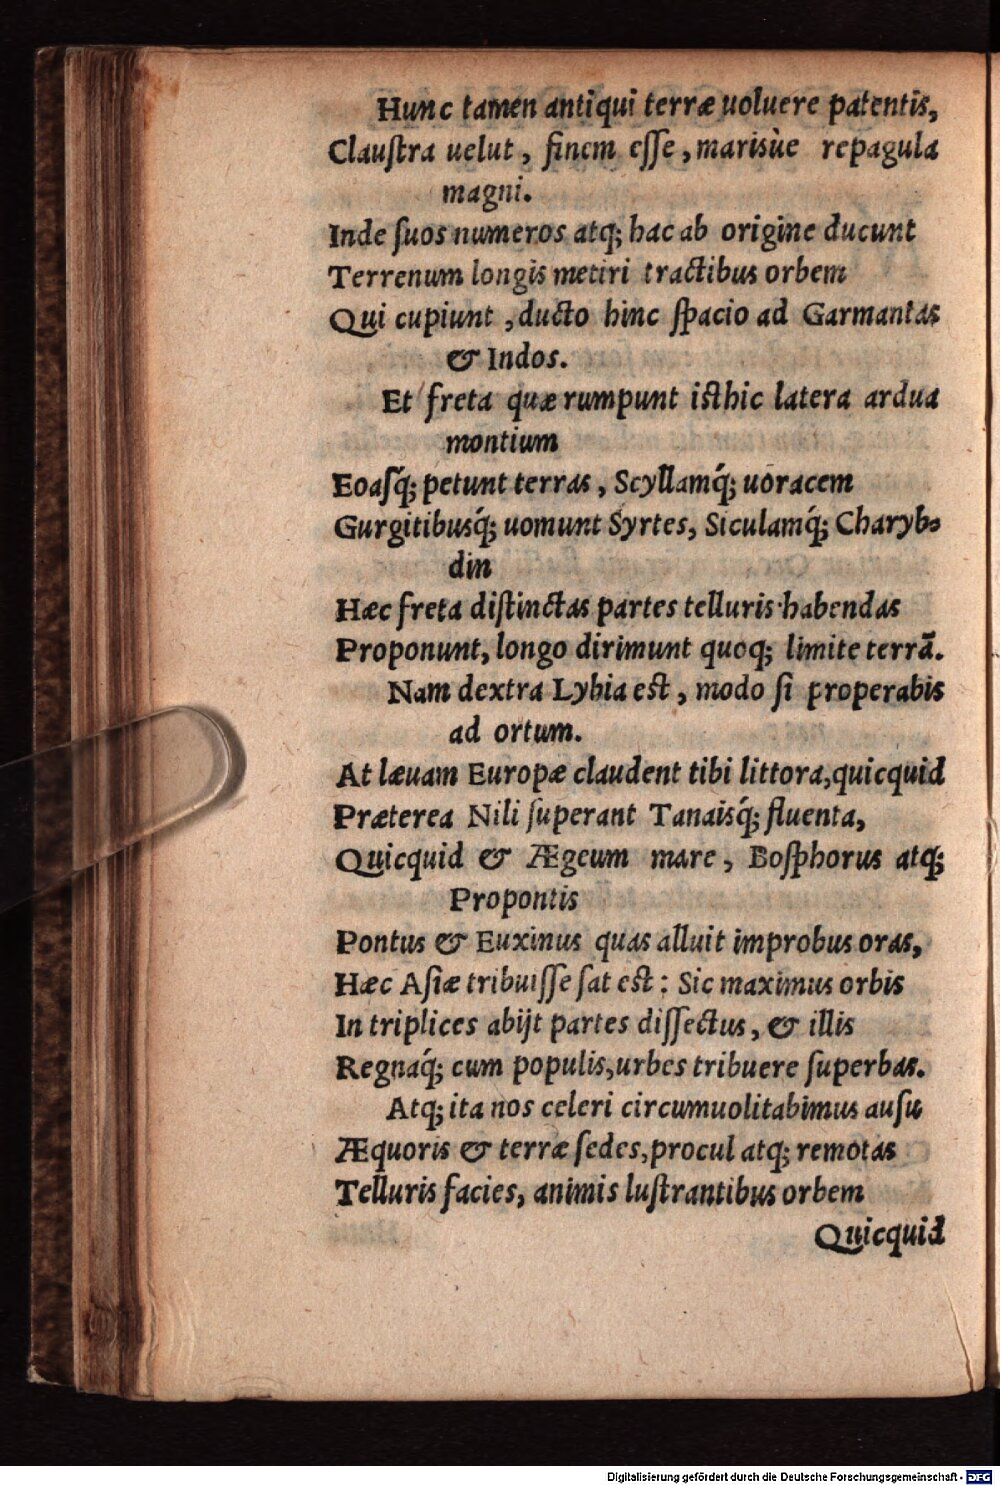 Hunc tamen antiqui terræ uoluere patentis,
Clauſtra uelut, finem eſſe, marisùe repagula
magni.
Inde ſuos numeros atq; hac ab origine ducunt
Terrenum longis metiri tractibus orbem
Qui cupiunt, ducto hinc ſpacio ad Garmantas
& Indos.
Et freta quæ rumpunt isthic latera ardua
montium
Eoasq́; petunt terras, Scyllamq́; uoracem
Gurgitibusq́; uomunt Syrtes, Siculamq́; Charyb-
din
Hæc freta diſtinctas partes telluris habendas
Proponunt, longo dirimunt quoq; limite terrā.
Nam dextra Lybia est, modo ſi properabis
ad ortum.
At læuam Europæ claudent tibi littora, quicquid
Præterea Nili ſuperant Tanaisq́; fluenta,
Quicquid & Ægeum mare, Boſphorus atq;
Propontis
Pontus & Euxinus quas alluit improbus oras,
Hæc Aſiæ tribuiſſe ſat est: Sic maximus orbis
In triplices abijt partes diſſectus, & illis
Regnaq́; cum populis, urbes tribuere ſuperbas.
Atq; ita nos celeri circumuolitabimus auſu
Æquoris & terræ ſedes, procul atq; remotas
Telluris facies, animis luſtrantibus orbem
Quicquid
Digitalisierung gefördert durch die Deutsche Forschungsgemeinschaft - DFG